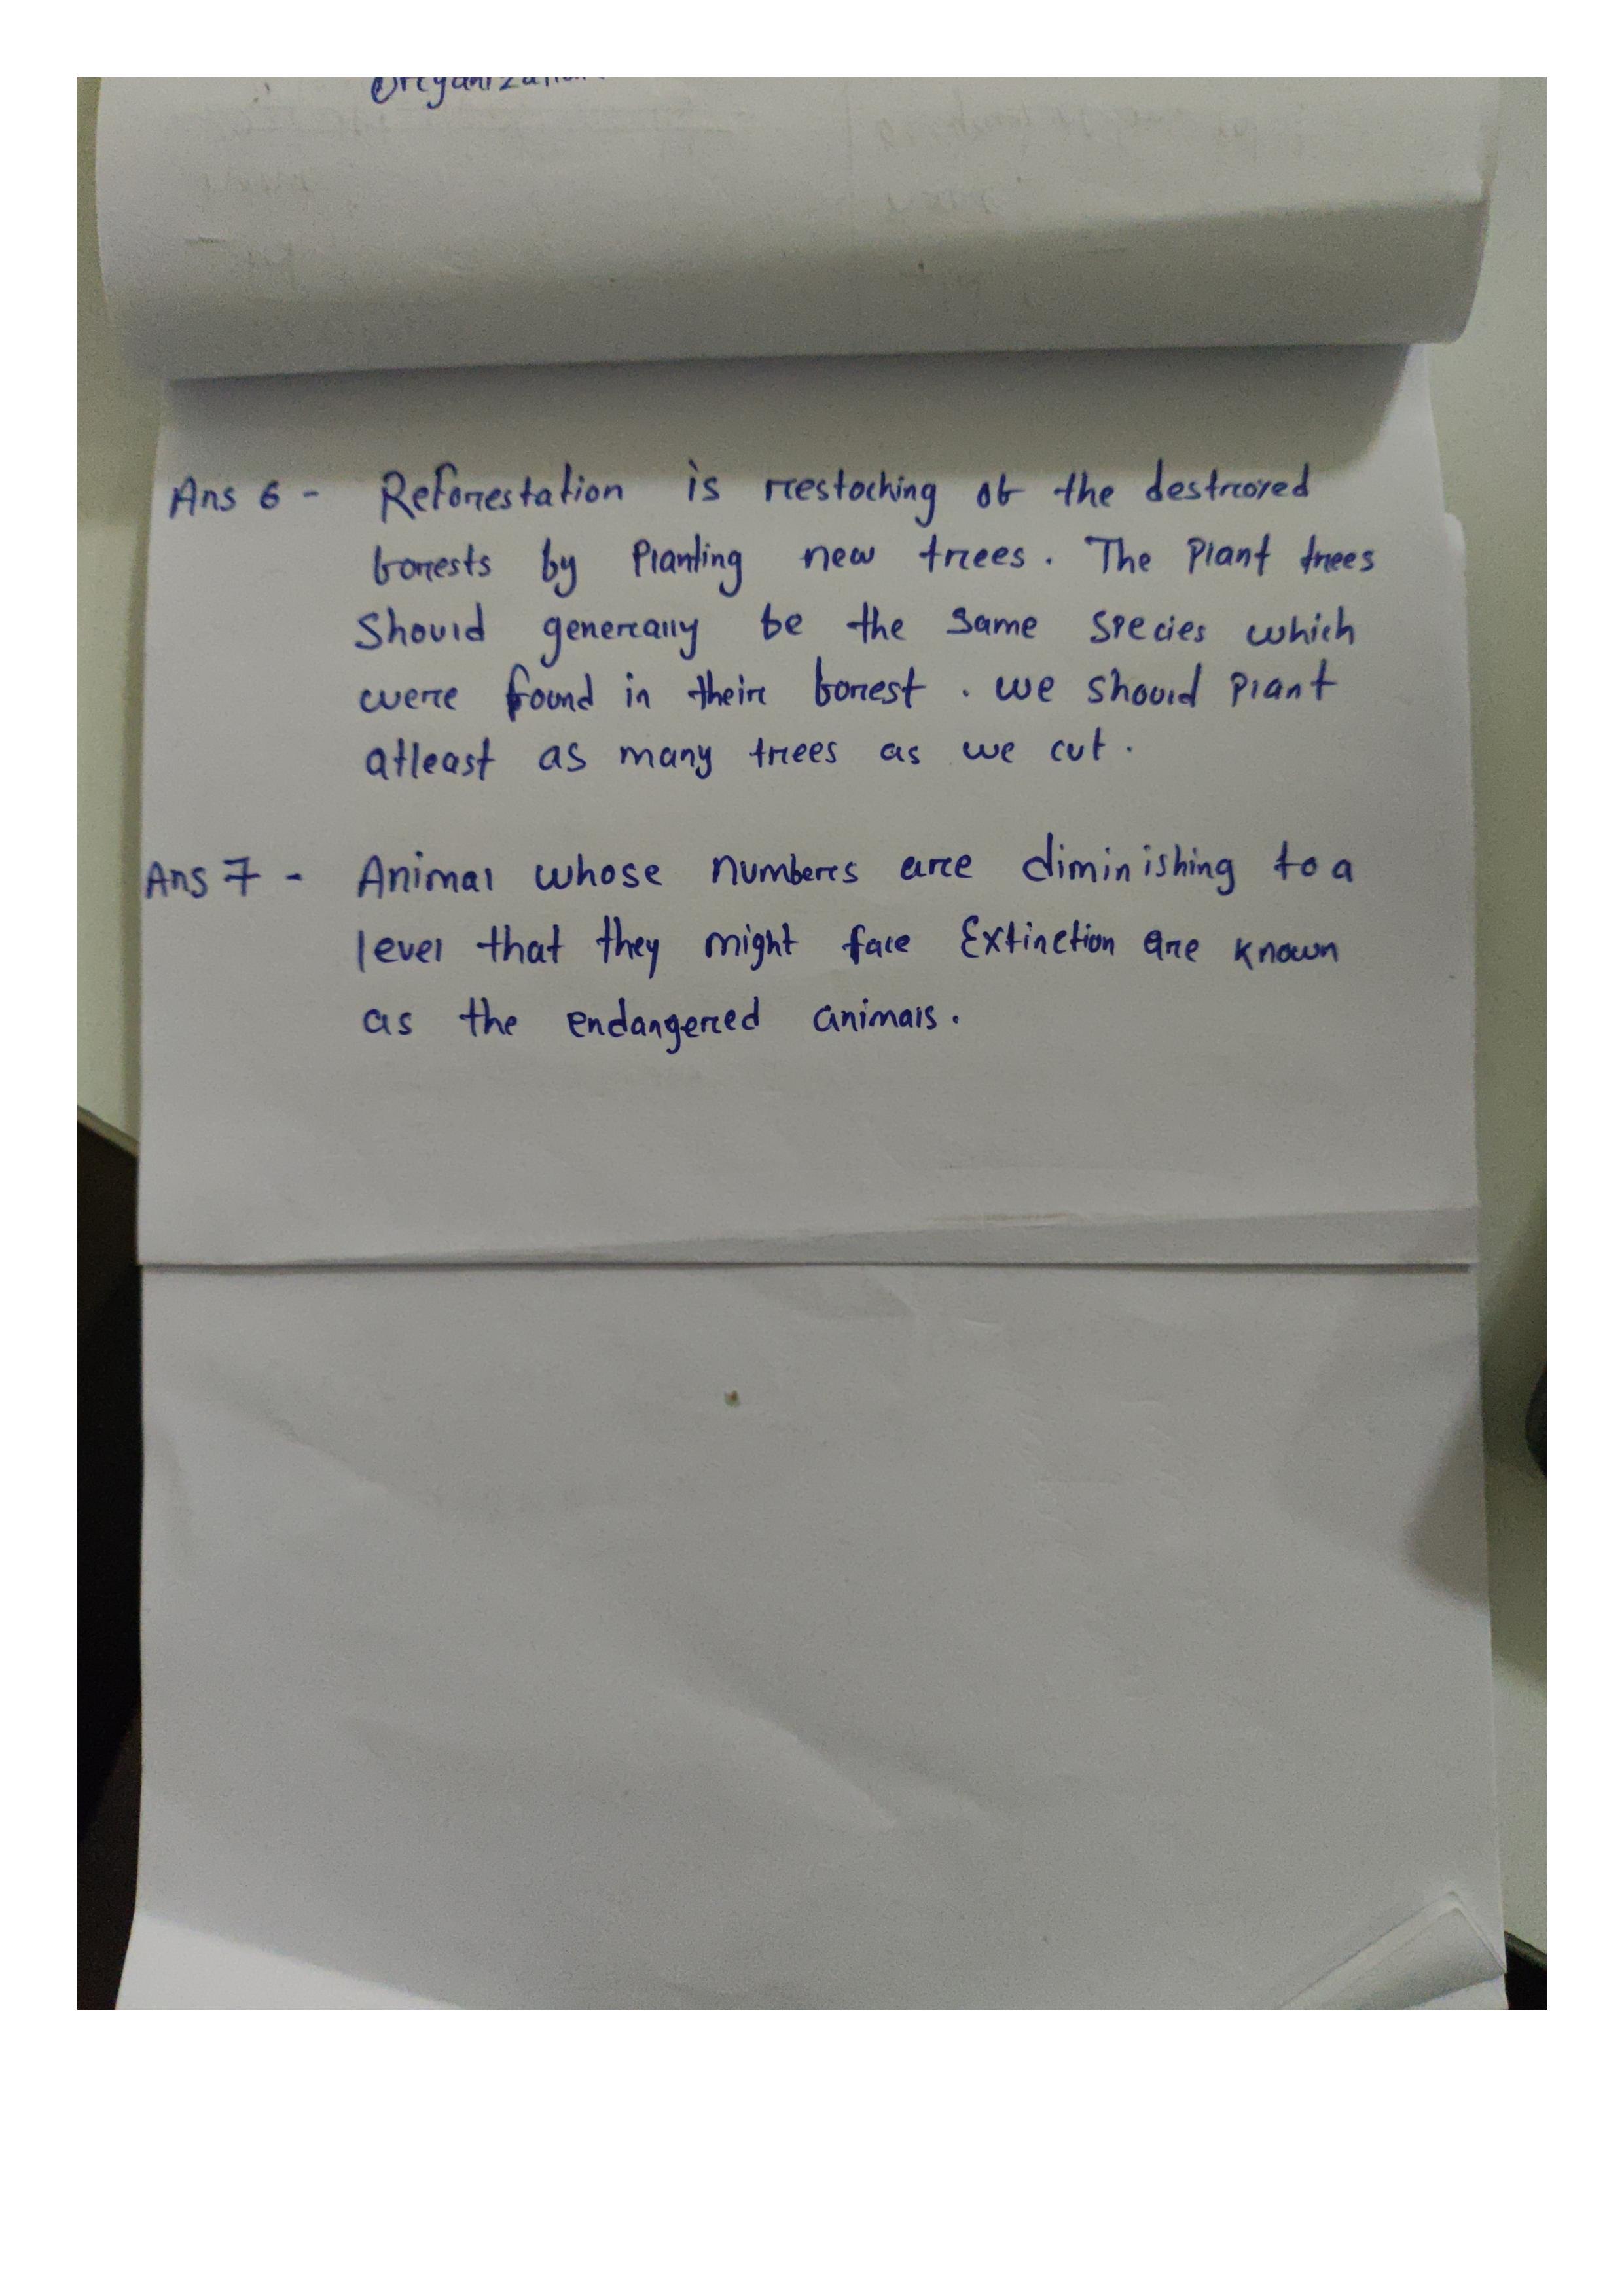 Organization.
Ans 6 - Reforestation is restocking of the destroyed
forests by Planting new trees. The Plant trees
Should generally be the same species which
were found in their forest. we should plant
atleast as many trees as we cut.
Ans 7 - Animal whose numbers are diminishing to a
level that they might face Extinction are known
as the endangered animals.